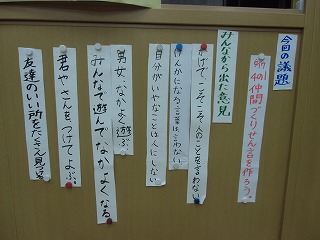 今回の議題
4の1仲間づくりせん言を作ろう。
みんなから出た意見
かげで、こそこそ人のことを言わない
けんかになる言葉は言わない
自分がいやなことは人にしない
男女、なかよく遊ぶ。
みんなで遊んでなかよくなる
君やさんをつけてよぶ。
友達のいい所をたくさん見つける